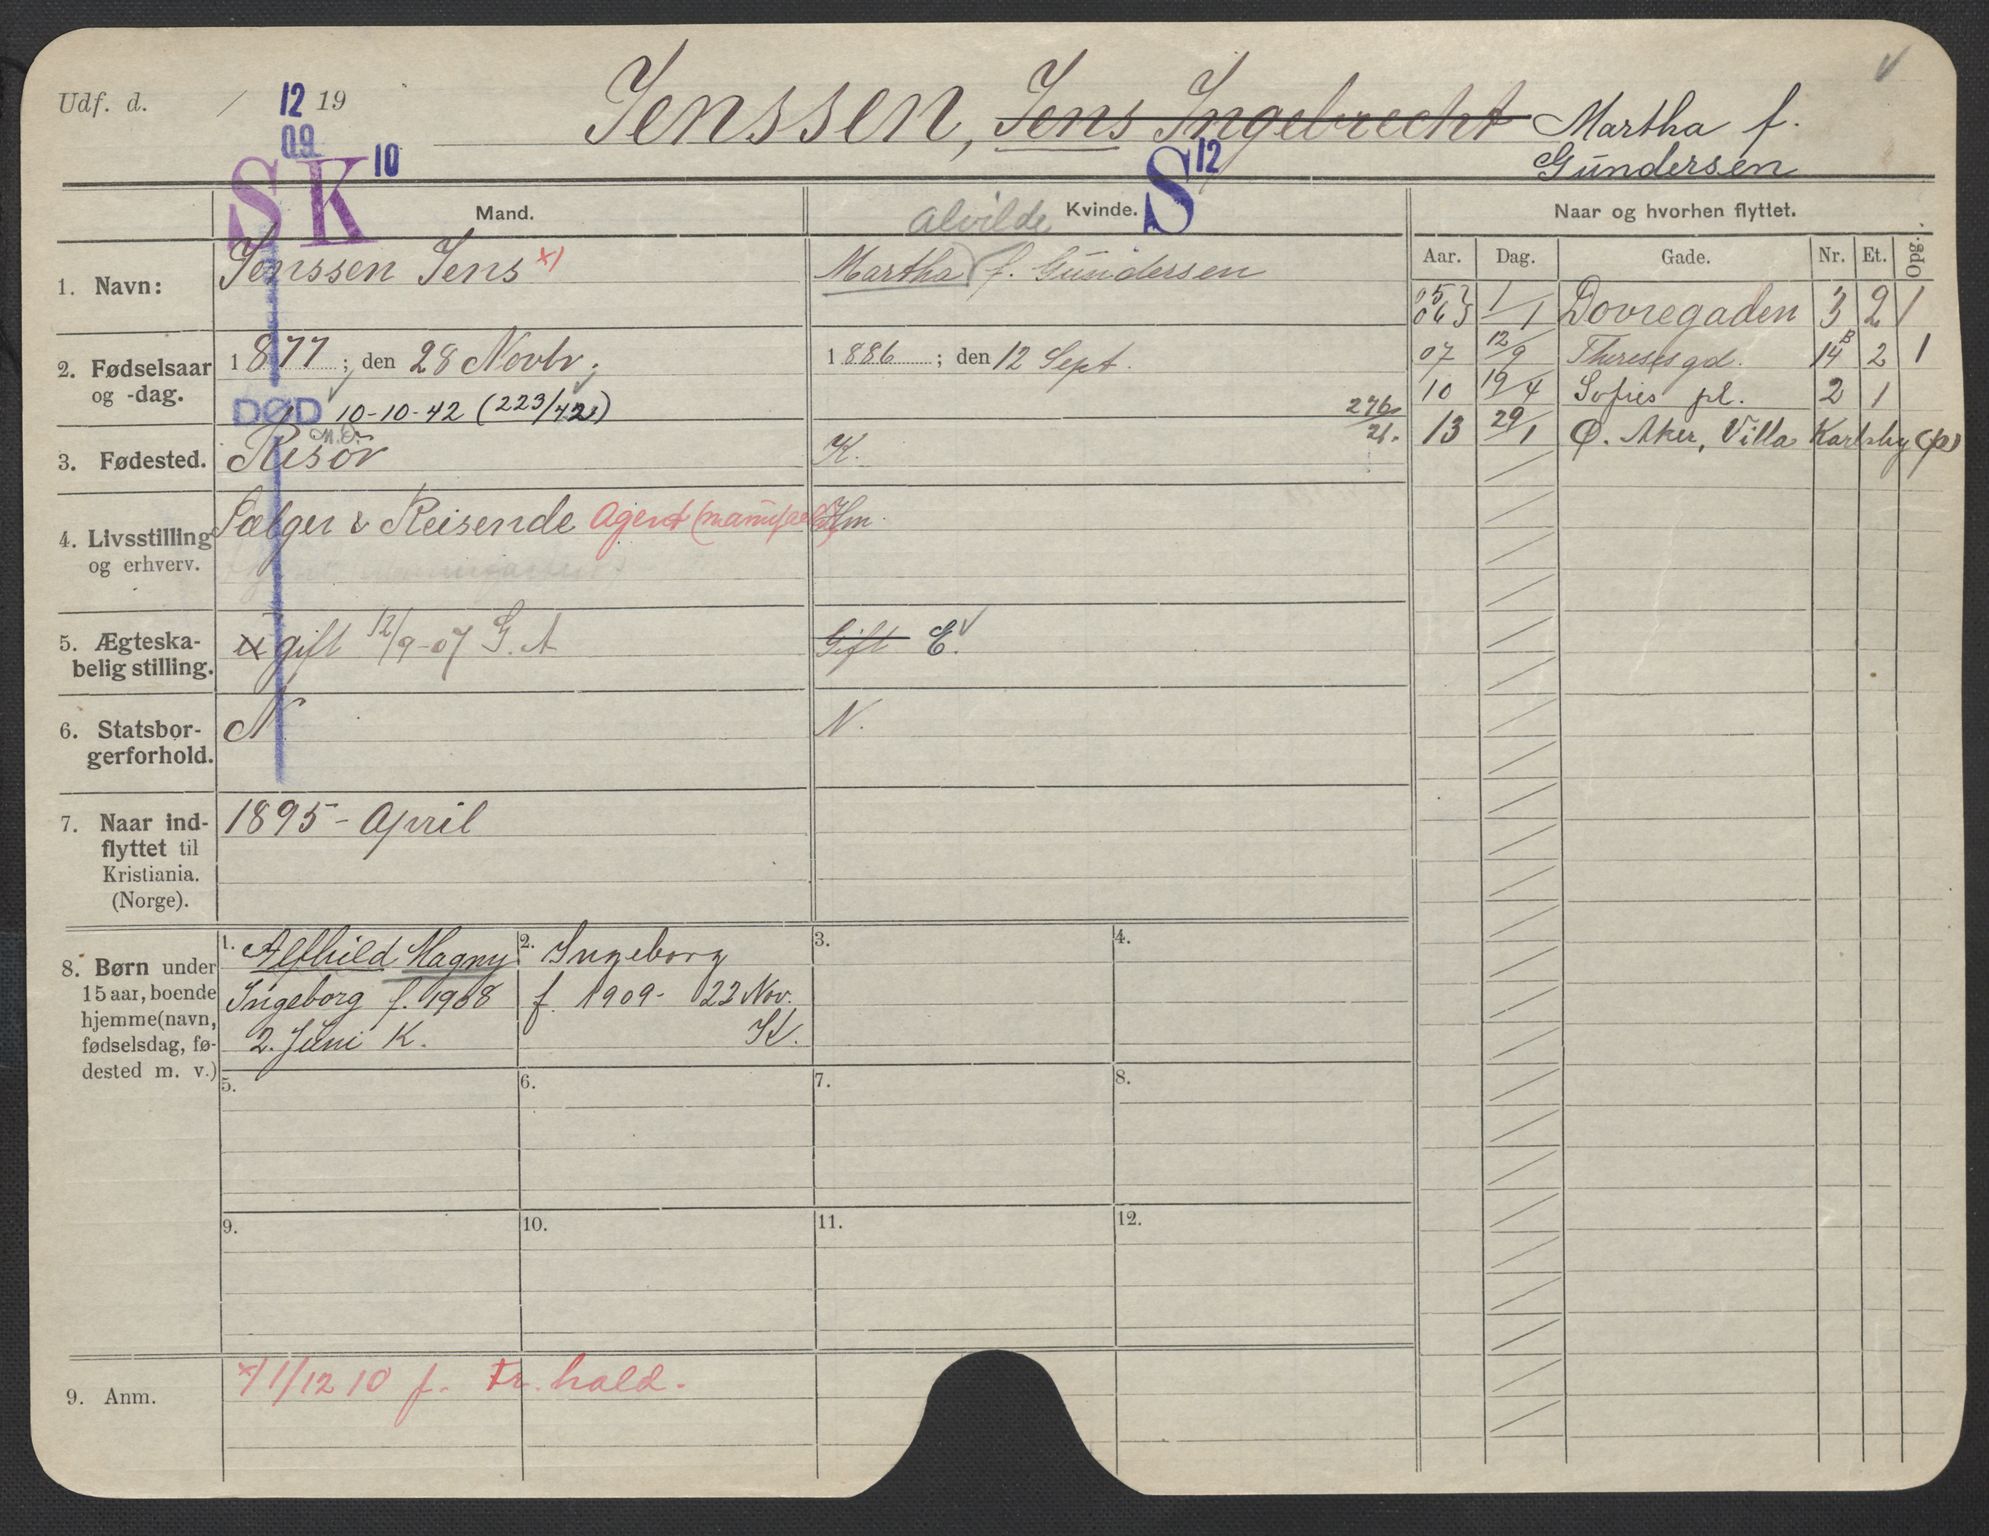 Udf. d. / 12 19
09
Jenssen, Jens Ingebrecht Martha f.
Gundersen
S K 10
S 12
Mand.
Alvilde Kvinde.
Naar og hvorhen flyttet.
Aar. Dag. Gade. Nr. Et. Opg.
1. Navn: Jenssen Jens x) Martha f. Gundersen
05 } 1/1 Dovregaden 3 2 1
06 }
2. Fødselsaar og -dag. 1877; den 28 Novbr. 1886; den 12 Sept.
07 12/9 Theresesgd. 14 B 2 1
DØD 10-10-42 (223/42)
276
21.
10 19/4 Sofies pl. 2 1
13 29/1 Ø. Aker, Villa Karlsby (p)
3. Fødested. Risør K.
4. Livsstilling og erhverv. Sælger & Reisende Agent Hm.
5. Ægteska-
belig stilling. gift 12/9-07 G. A Gift E.
6. Statsbor-
gerforhold. N N.
7. Naar ind-
flyttet til
Kristiania.
(Norge).
1895 - April
8. Børn under
15 aar, boende
hjemme (navn,
fødselsdag, fø-
dested m. v.)
1. Alfhild Magny
Ingeborg f. 1908
2. Juni K.
2. Ingeborg
f. 1909- 22 Nov.
K.
3.
4.
5.
6.
7.
8.
9.
10.
11.
12.
9. Anm. x) 1/12 10 f. Tr. hald.